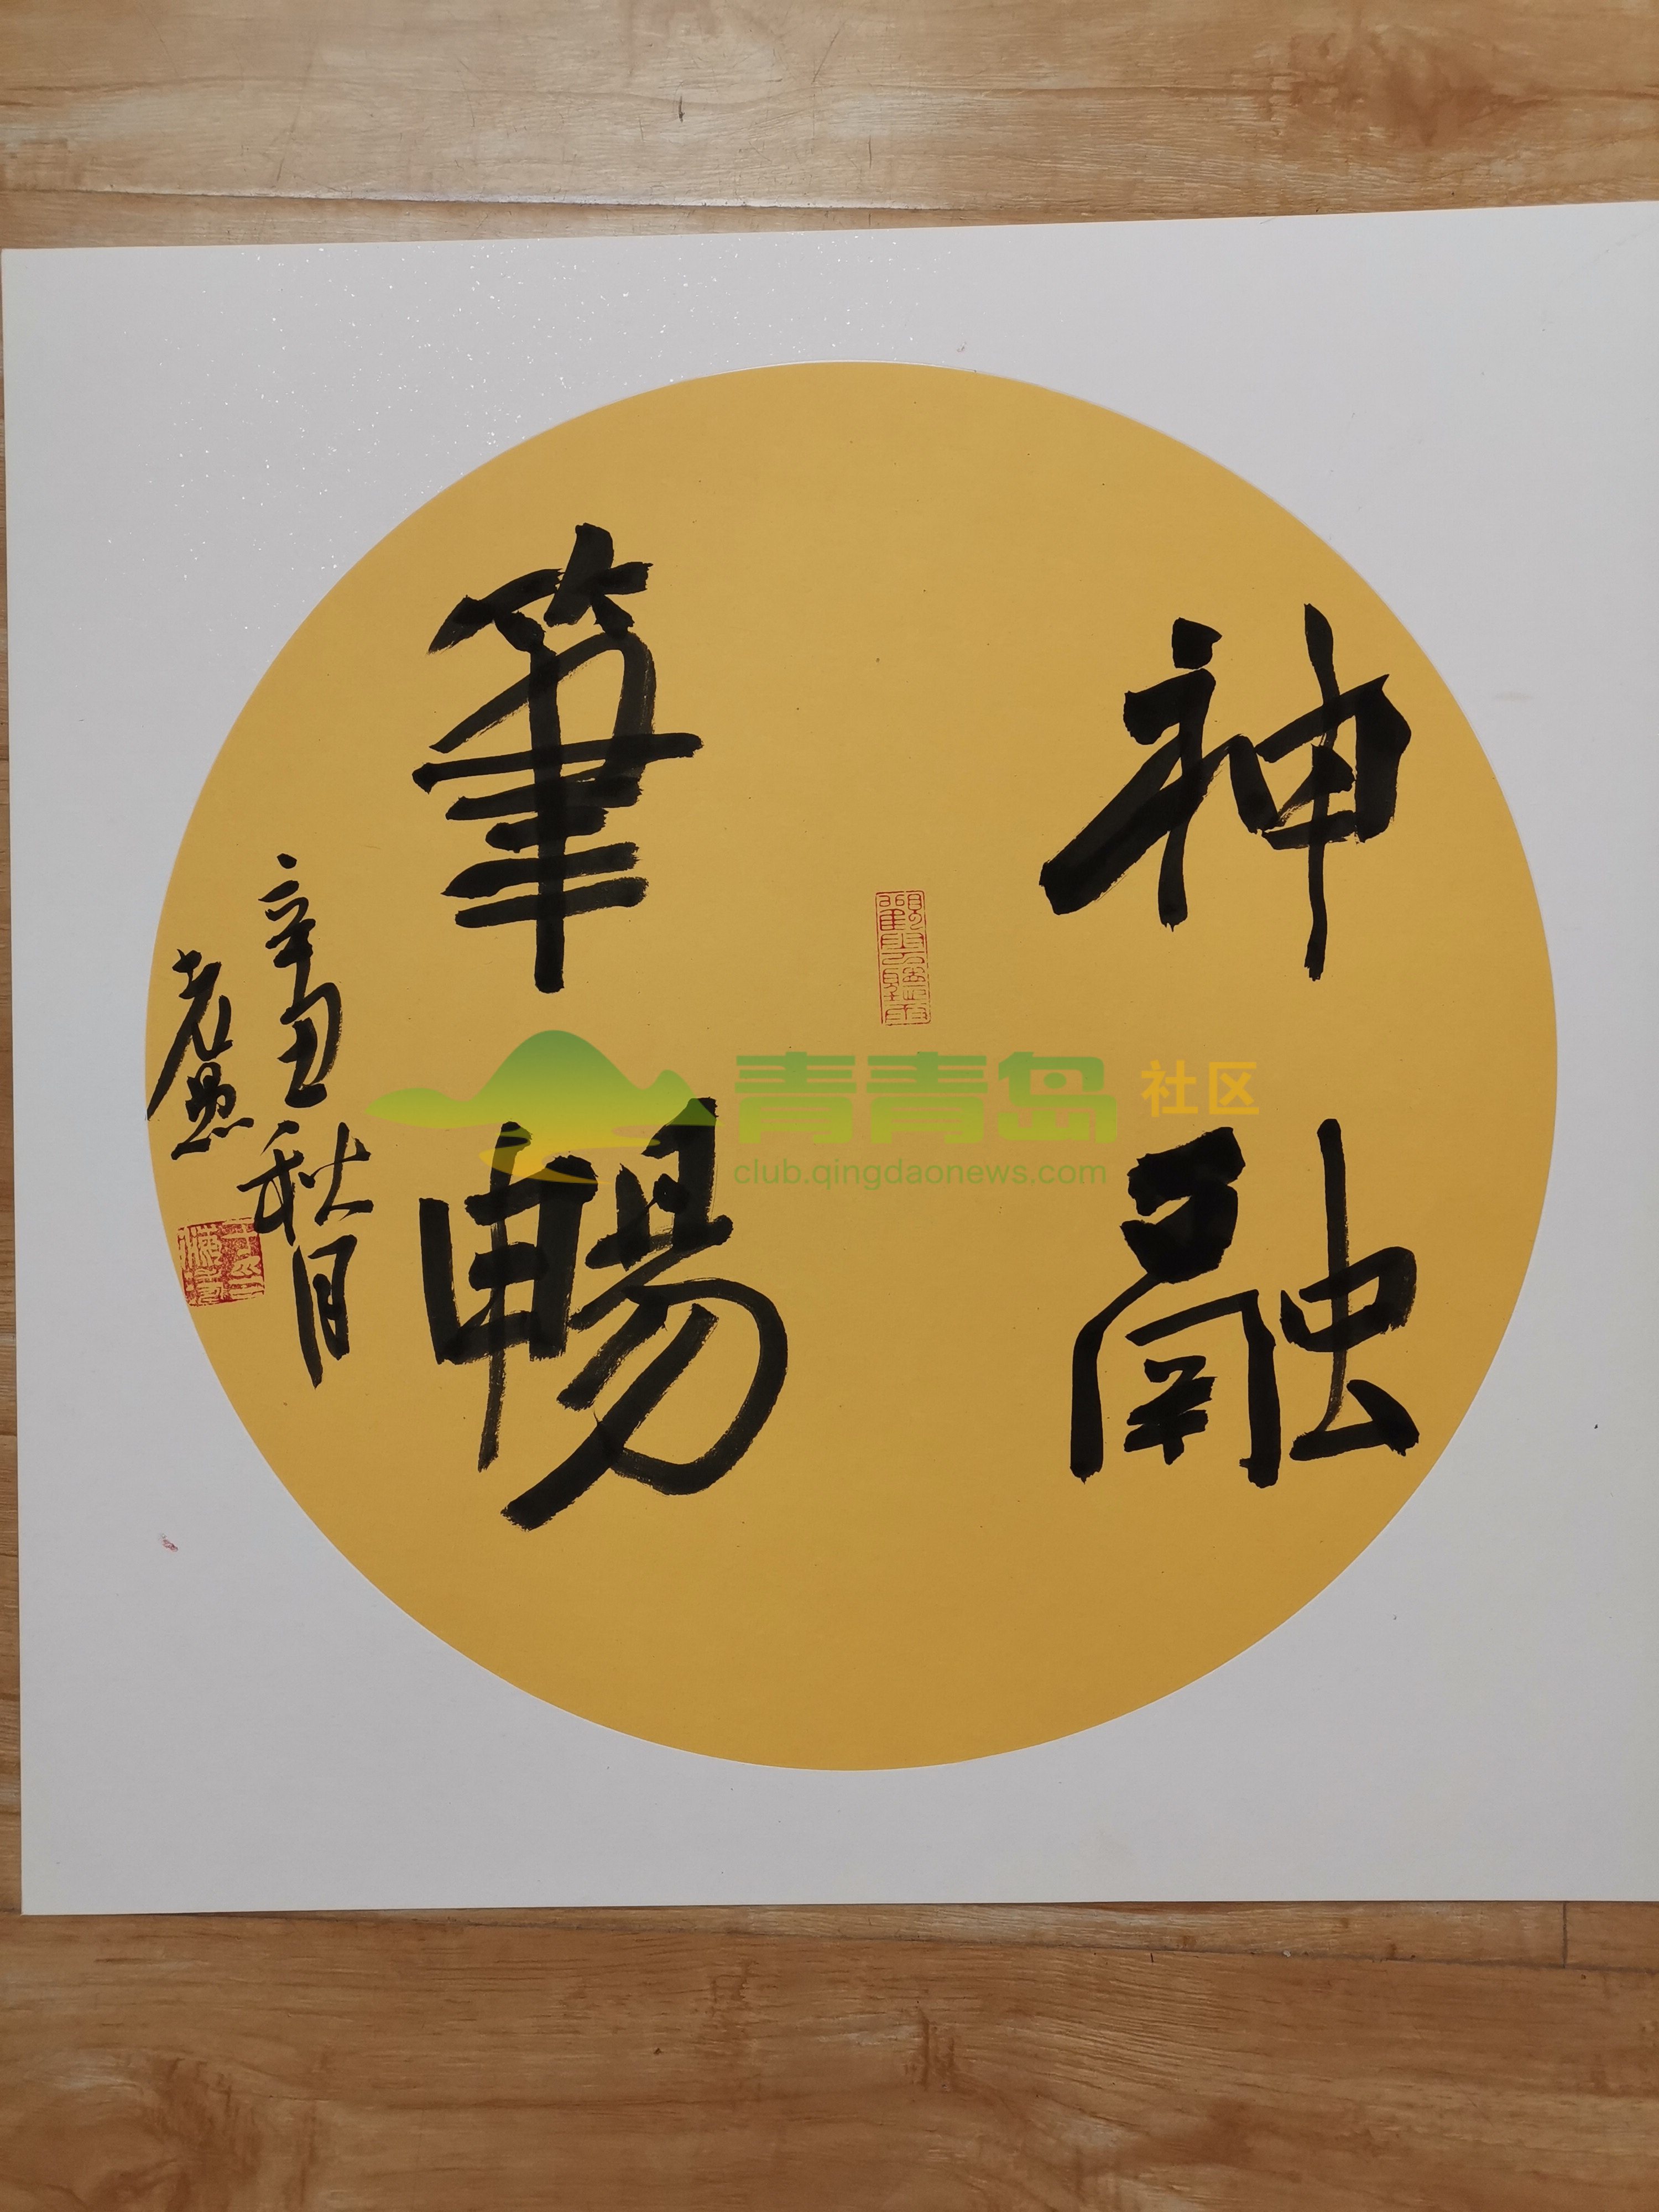 神融
筆暢
辛丑秋月
老愚
青青岛社区
club.qingdaonews.com